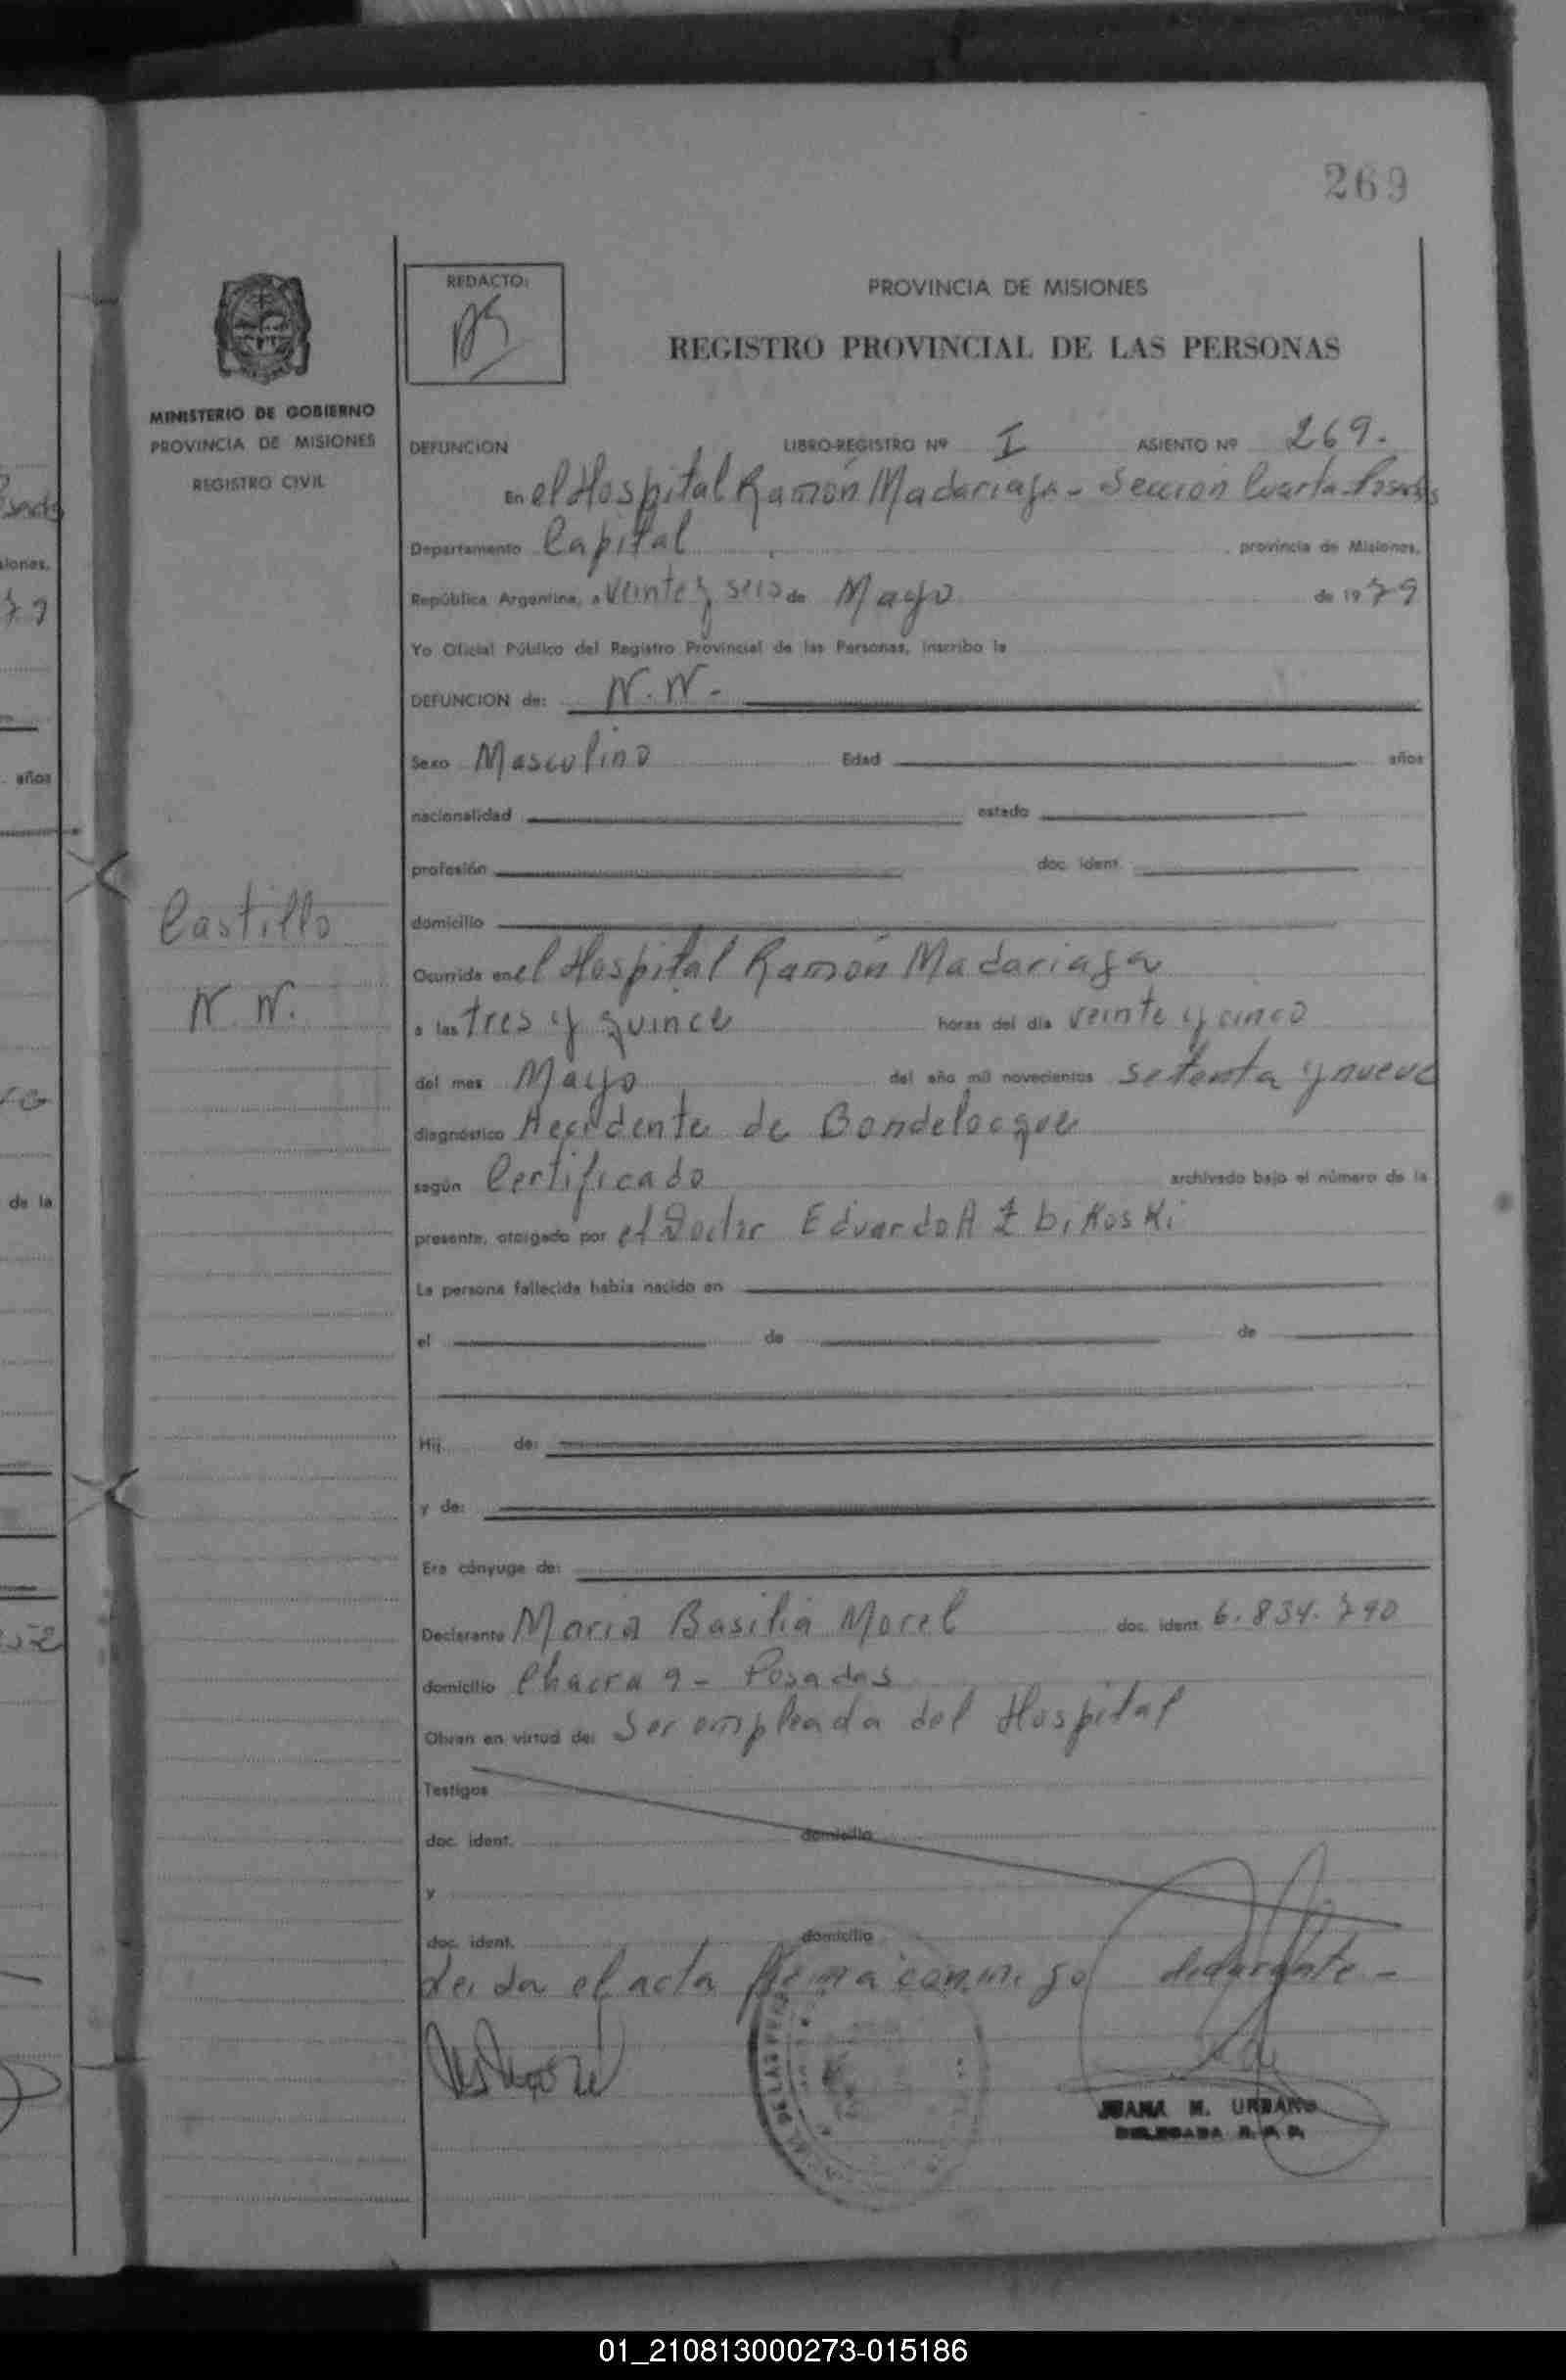 269
REDACTO:
PROVINCIA DE MISIONES
REGISTRO PROVINCIAL DE LAS PERSONAS
MINISTERIO DE GOBIERNO
PROVINCIA DE MISIONES
REGISTRO CIVIL
DEFUNCION LIBRO-REGISTRO Nº I ASIENTO Nº 269.
En el Hospital Ramón Madariaga - Sección Cuarta - Posadas
Departamento Capital, provincia de Misiones,
República Argentina, a veinte y seis de Mayo de 1979
Yo Oficial Público del Registro Provincial de las Personas, inscribo la
DEFUNCION de: N.N.
Sexo Masculino Edad años
nacionalidad estado
profesión doc. ident.
domicilio
Castillo
N. N.
Ocurrida en el Hospital Ramón Madariaga
a las tres y quince horas del día veinte y cinco
del mes Mayo del año mil novecientos setenta y nueve
diagnóstico Accidente de Bondelocque
según Certificado archivado bajo el número de la
presente, otorgado por el Doctor Eduardo A
La persona fallecida había nacido en
el de de
Hij de:
y de:
Era cónyuge de:
Declarante Maria Basilia Morel doc. ident. 6.834.790
domicilio Chacra 9 - Posadas
Obran en virtud de: Ser empleada del Hospital
Testigos
doc. ident. domicilio
y
doc. ident. domicilio
Leida el acta firma conmigo declarante -
JUANA M. URBANO
DELEGADA R. P. P.
años
de la
01_210813000273-015186